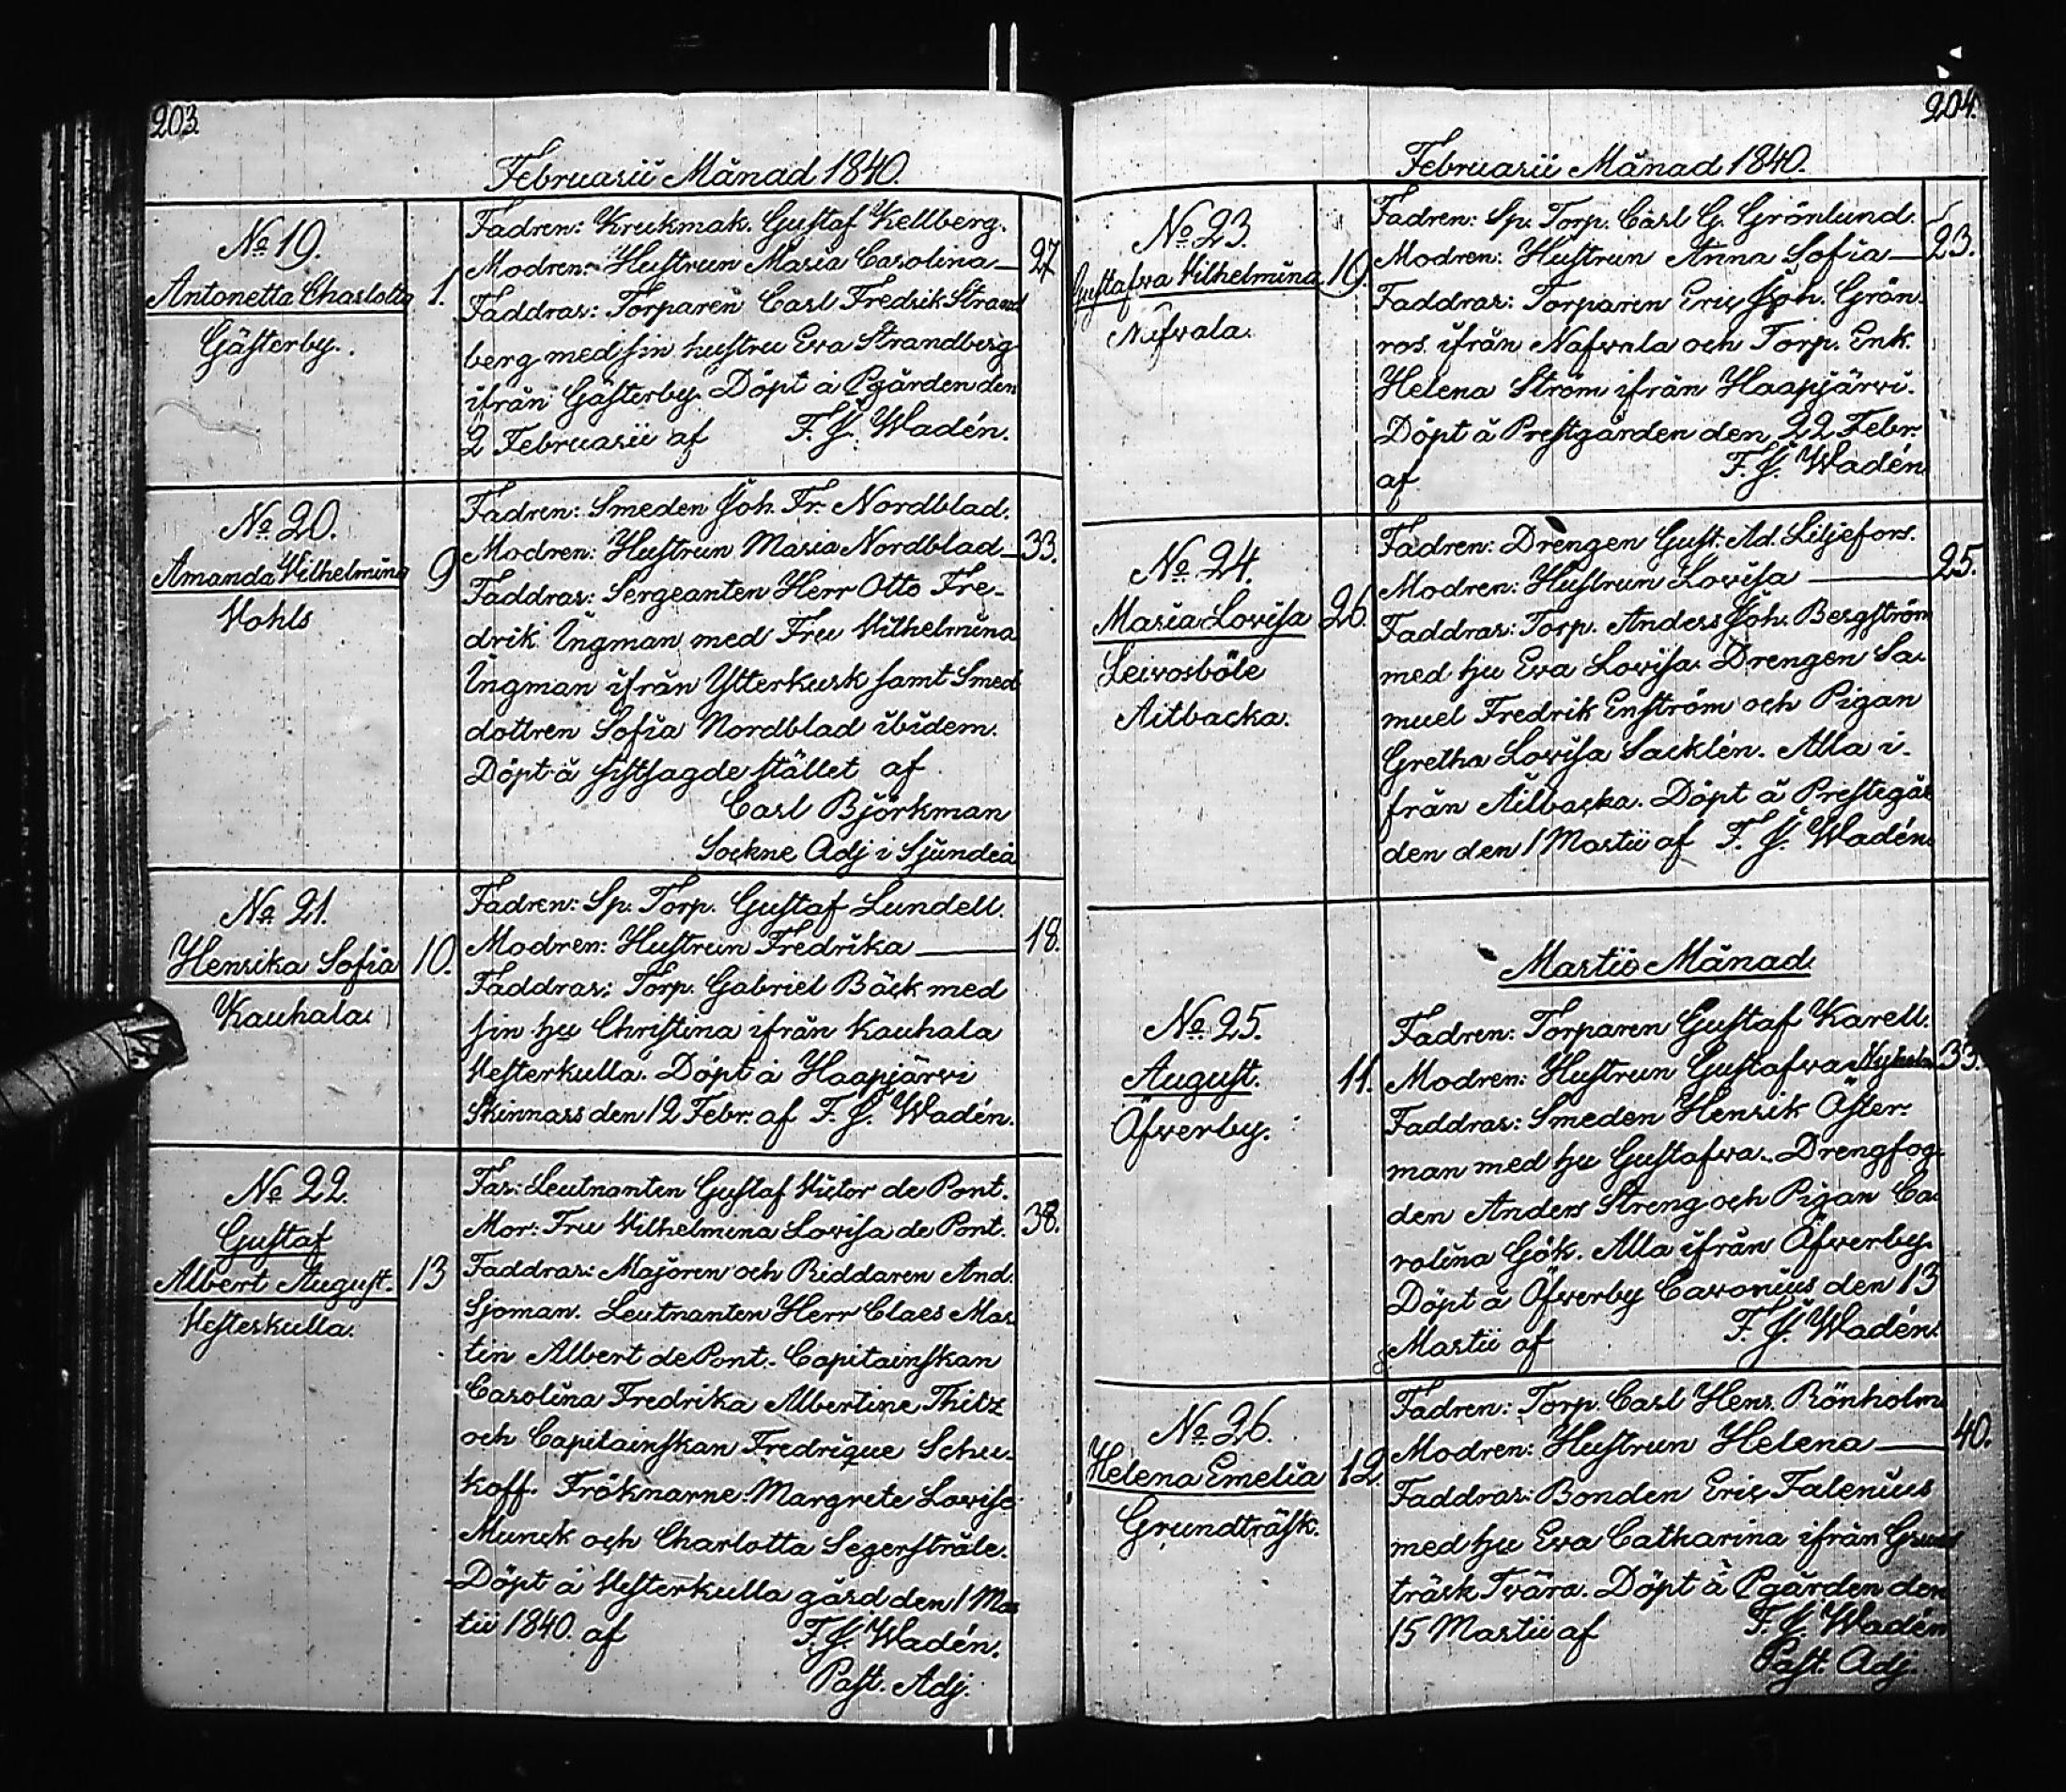 203.
Februarii Månad 1840.
No 19.
Antonetta Charlotta
Gästerby.
1.
Fadren: Krukmak. Gustaf Kellberg.
Modren: Hustrun Maria Carolina — 27
Faddrar: Torparen Carl Fredrik Strand
berg med sin hustru Eva Strandberg
ifrån Gästerby. Döpt å Pgården den
2 Februarii af F. J. Wadén.
No 20.
Amanda Vilhelmina
Vohls
9
Fadren: Smeden Joh. Fr. Nordblad.
Modren: Hustrun Maria Nordblad — 33.
Faddrar: Sergeanten Herr Otto Fre-
drik Ingman med Fru Vilhelmina
Ingman ifrån Ytterkurk samt Smed
dottren Sofia Nordblad ibidem.
Döpt å sistsagde stället af
Carl Björkman
Sockne Adj i Sjundeå
No 21.
Henrika Sofia
Kauhala.
10.
Fadren: Sp. Torp. Gustaf Lundell.
Modren: Hustrun Fredrika — 18.
Faddrar: Torp. Gabriel Bäck med
sin hu Christina ifrån Kauhala
Vesterkulla. Döpt å Haapjärvi
Skinnars den 12 Febr. af F. J. Wadén.
No 22.
Gustaf
Albert August.
Vesterkulla.
13
Far: Leutnanten Gustaf Victor de Pont.
Mor: Fru Vilhelmina Lovisa de Pont. 38.
Faddrar: Majoren och Riddaren And.
Sjoman. Leutnanten Herr Claes Mar
tin Albert de Pont. Capitainskan
Carolina Fredrika Albertine Thitz
och Capitainskan Fredrique Schu-
koff. Fröknarne Margrete Lovisa
Munck och Charlotta Segerstråle.
Döpt å Vesterkulla gård den 1 Mar
tii 1840. af F. J. Wadén.
Past. Adj.
204.
Februarii Månad 1840.
No 23.
Gustafva Vilhelmina
Nafvala.
19.
Fadren: Sp. Torp. Carl G. Grönlund.
Modren: Hustrun Anna Sofia — 23.
Faddrar: Torparen Eric Joh. Grön
ros. ifrån Nafvala och Torp. Enk.
Helena Ström ifrån Haapjärvi.
Döpt å Prestgården den 22 Febr.
af F. J. Wadén
No 24.
Maria Lovisa
Leivosböle
Aitbacka.
26.
Fadren: Drengen Gust. Ad. Liljefors.
Modren: Hustrun Lovisa — 25.
Faddrar: Torp. Anders Joh. Bergström
med hu Eva Lovisa. Drengen Sa-
muel Fredrik Enström och Pigan
Gretha Lovisa Sacklén. Alla i-
från Aitbacka. Döpt å Prestegår
den den 1 Martii af F. J. Wadén.
Martii Månad.
No 25.
August.
Öfverby.
11.
Fadren: Torparen Gustaf Karell.
Modren: Hustrun Gustafva 33.
Faddrar: Smeden Henrik Öster-
man med hu Gustafva. Drengfog-
den Anders Streng och Pigan Ca-
rolina Gök. Alla ifrån Öfverby.
Döpt å Öfverby Cavonius den 13
Martii af F. J. Wadén.
No 26.
Helena Emelia
Grundträsk.
12.
Fadren: Torp. Carl Henr. Rönholm
Modren: Hustrun Helena — 40.
Faddrar: Bonden Eric Falenius
med hu Eva Catharina ifrån Grund
träsk Tvära. Döpt å Pgården den
15 Martii af F. J. Wadén
Past. Adj.